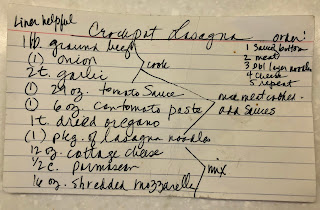 Liner helpful
Crockpot Lasagna
1 lb. ground beef
(1) onion
2 t. garlic
cook
(1) 29 oz. tomato Sauce
(1) 6 oz. can tomato paste
1 t. dried oregano
mix meat cooked
add sauces
(1) pkg. of lasagna noodles
12 oz. cottage cheese
1/2 c. parmesan
16 oz. shredded mozzarella
mix
order:
1 Sauce bottom
2 meat
3 Dbl layer noodles
4 cheese
5 repeat